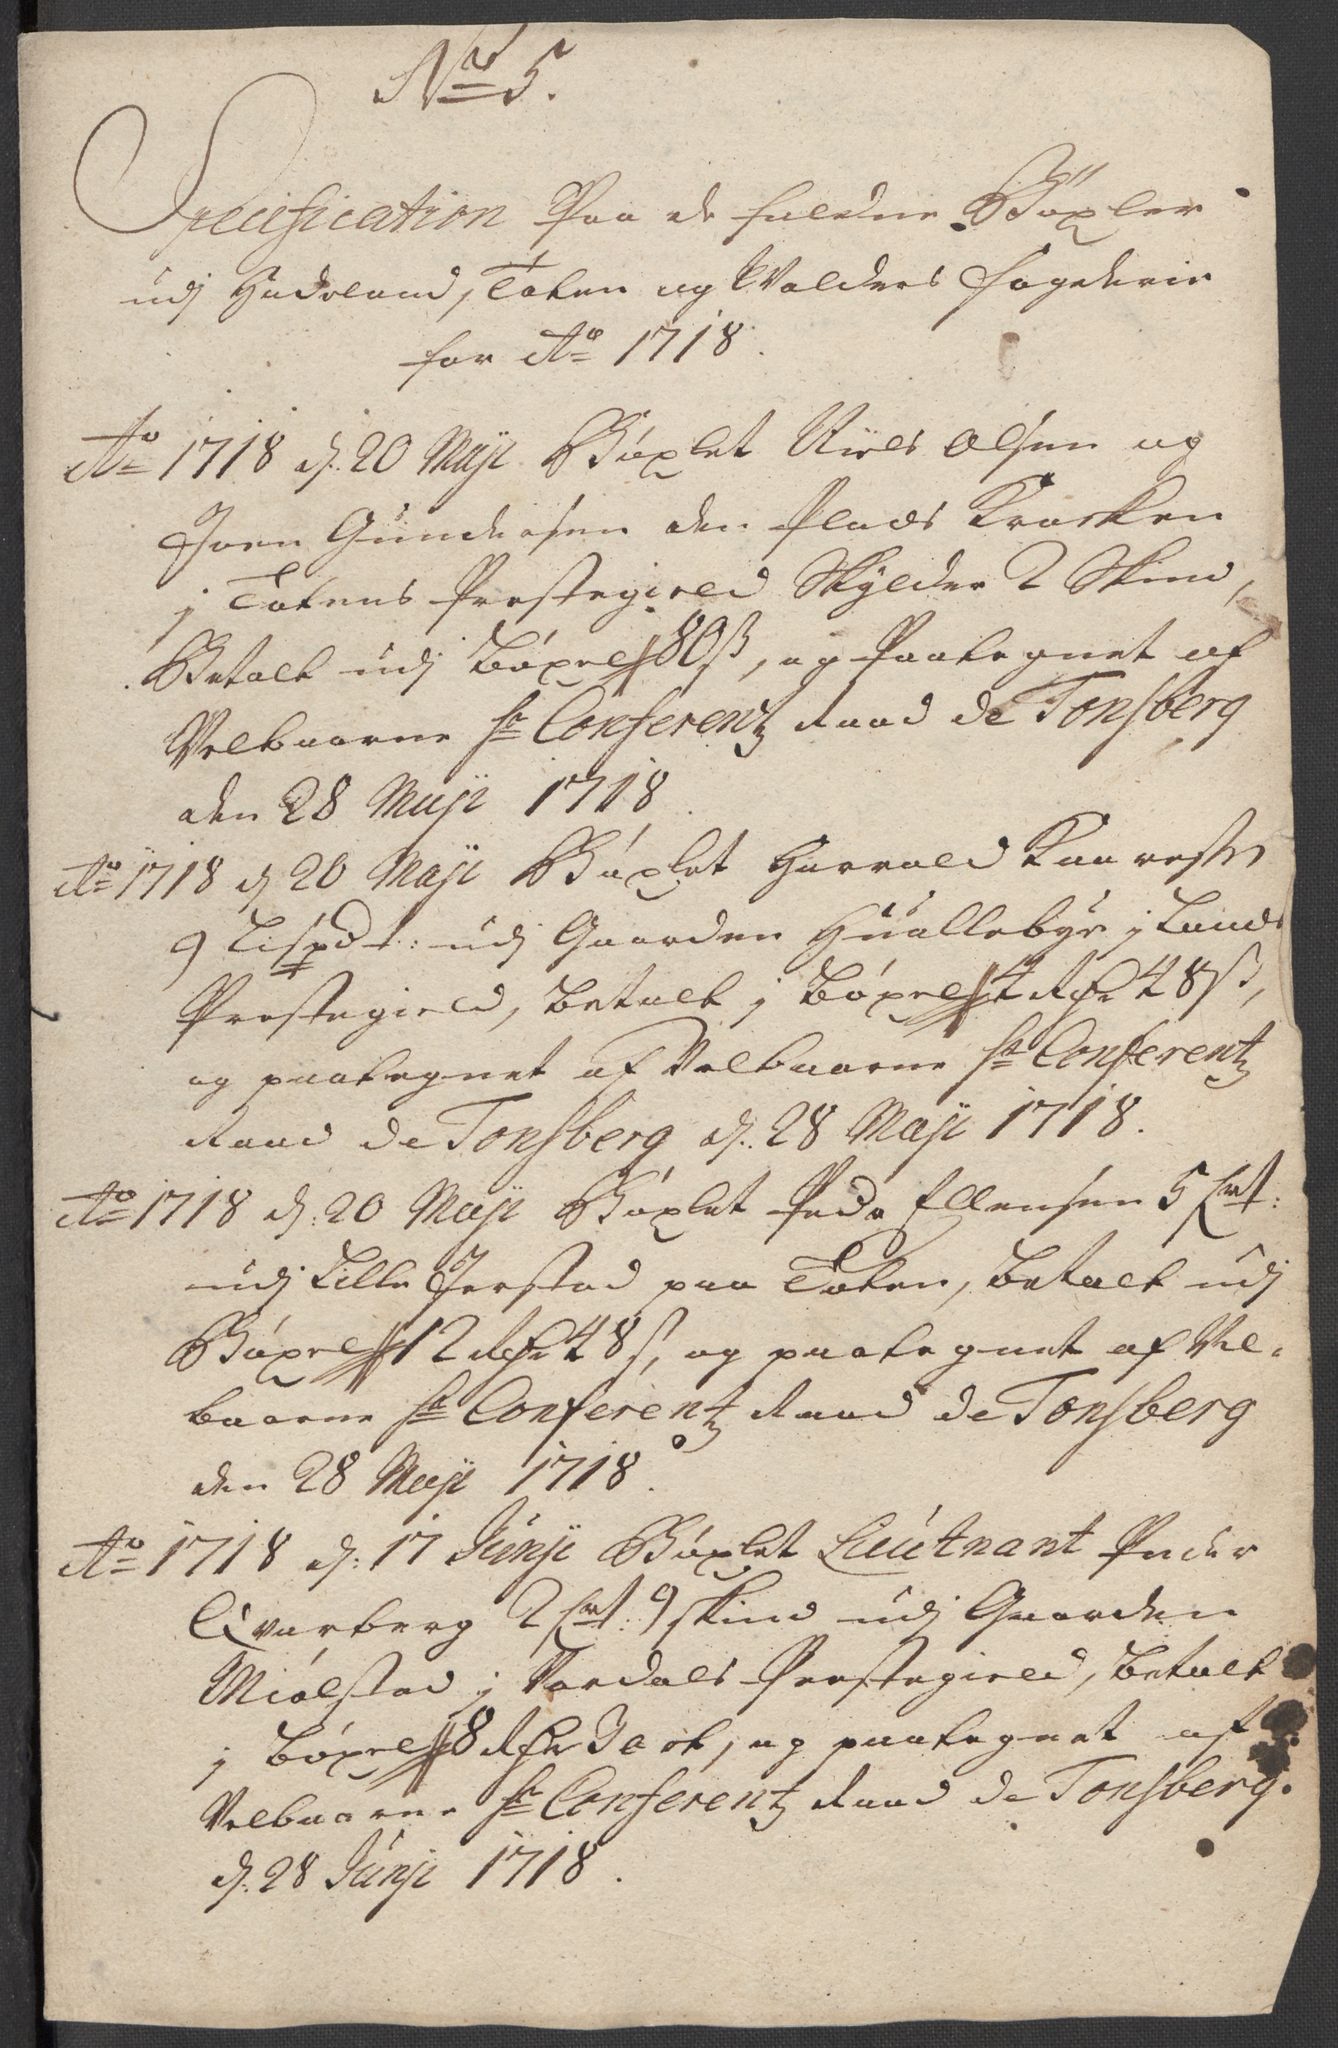 No 5.
Specification Paa de faldne Böxler
udj Hadeland, Toten og Walders fogderie
for Ao 1718.
Ao 1718 d. 20 Maji Böxlet Niels Olsen og
Joen Gundersen den Plads Krosken
j Totens Prestegield Skylder 2 Skind,
Betalt udj Böxel 80 ß, og Paategnet af
Velbaarne Hr Conferentz Raad de Tonsberg
den 28 Maji 1718.
Ao 1718 d 20 Maji Böxlet Harrald
9 Lispd t: udj Gaarden Hvallebye j Lands
Prestegield, Betalt j Böxel 4 Rdr 48 ß,
og paategnet af Velbaarne Hr Conferentz
Raad de Tonsberg d. 28 Maji 1718.
Ao 1718 d: 20 Maji Böxlet Peder Ellensen 5
udj Lille Jerstad paa Toten, Betalt udj
Böxel 12 Rdr 48 s, og paategnet af Vel-
baarne Hr Conferentz Raad de Tonsberg
den 28 Maji 1718.
Ao 1718 d: 17 Junji Böxlet Lieutnant Peder
Qvarberg 2 9 skind udj Gaarden
Miølstad j Vardals Prestegield, Betalt
j Böxel 8 Rdr 3 ort, og paategnet af
Velbaarne Hr Conferentz Raad de Tonsberg.
d. 28 Junji 1718.